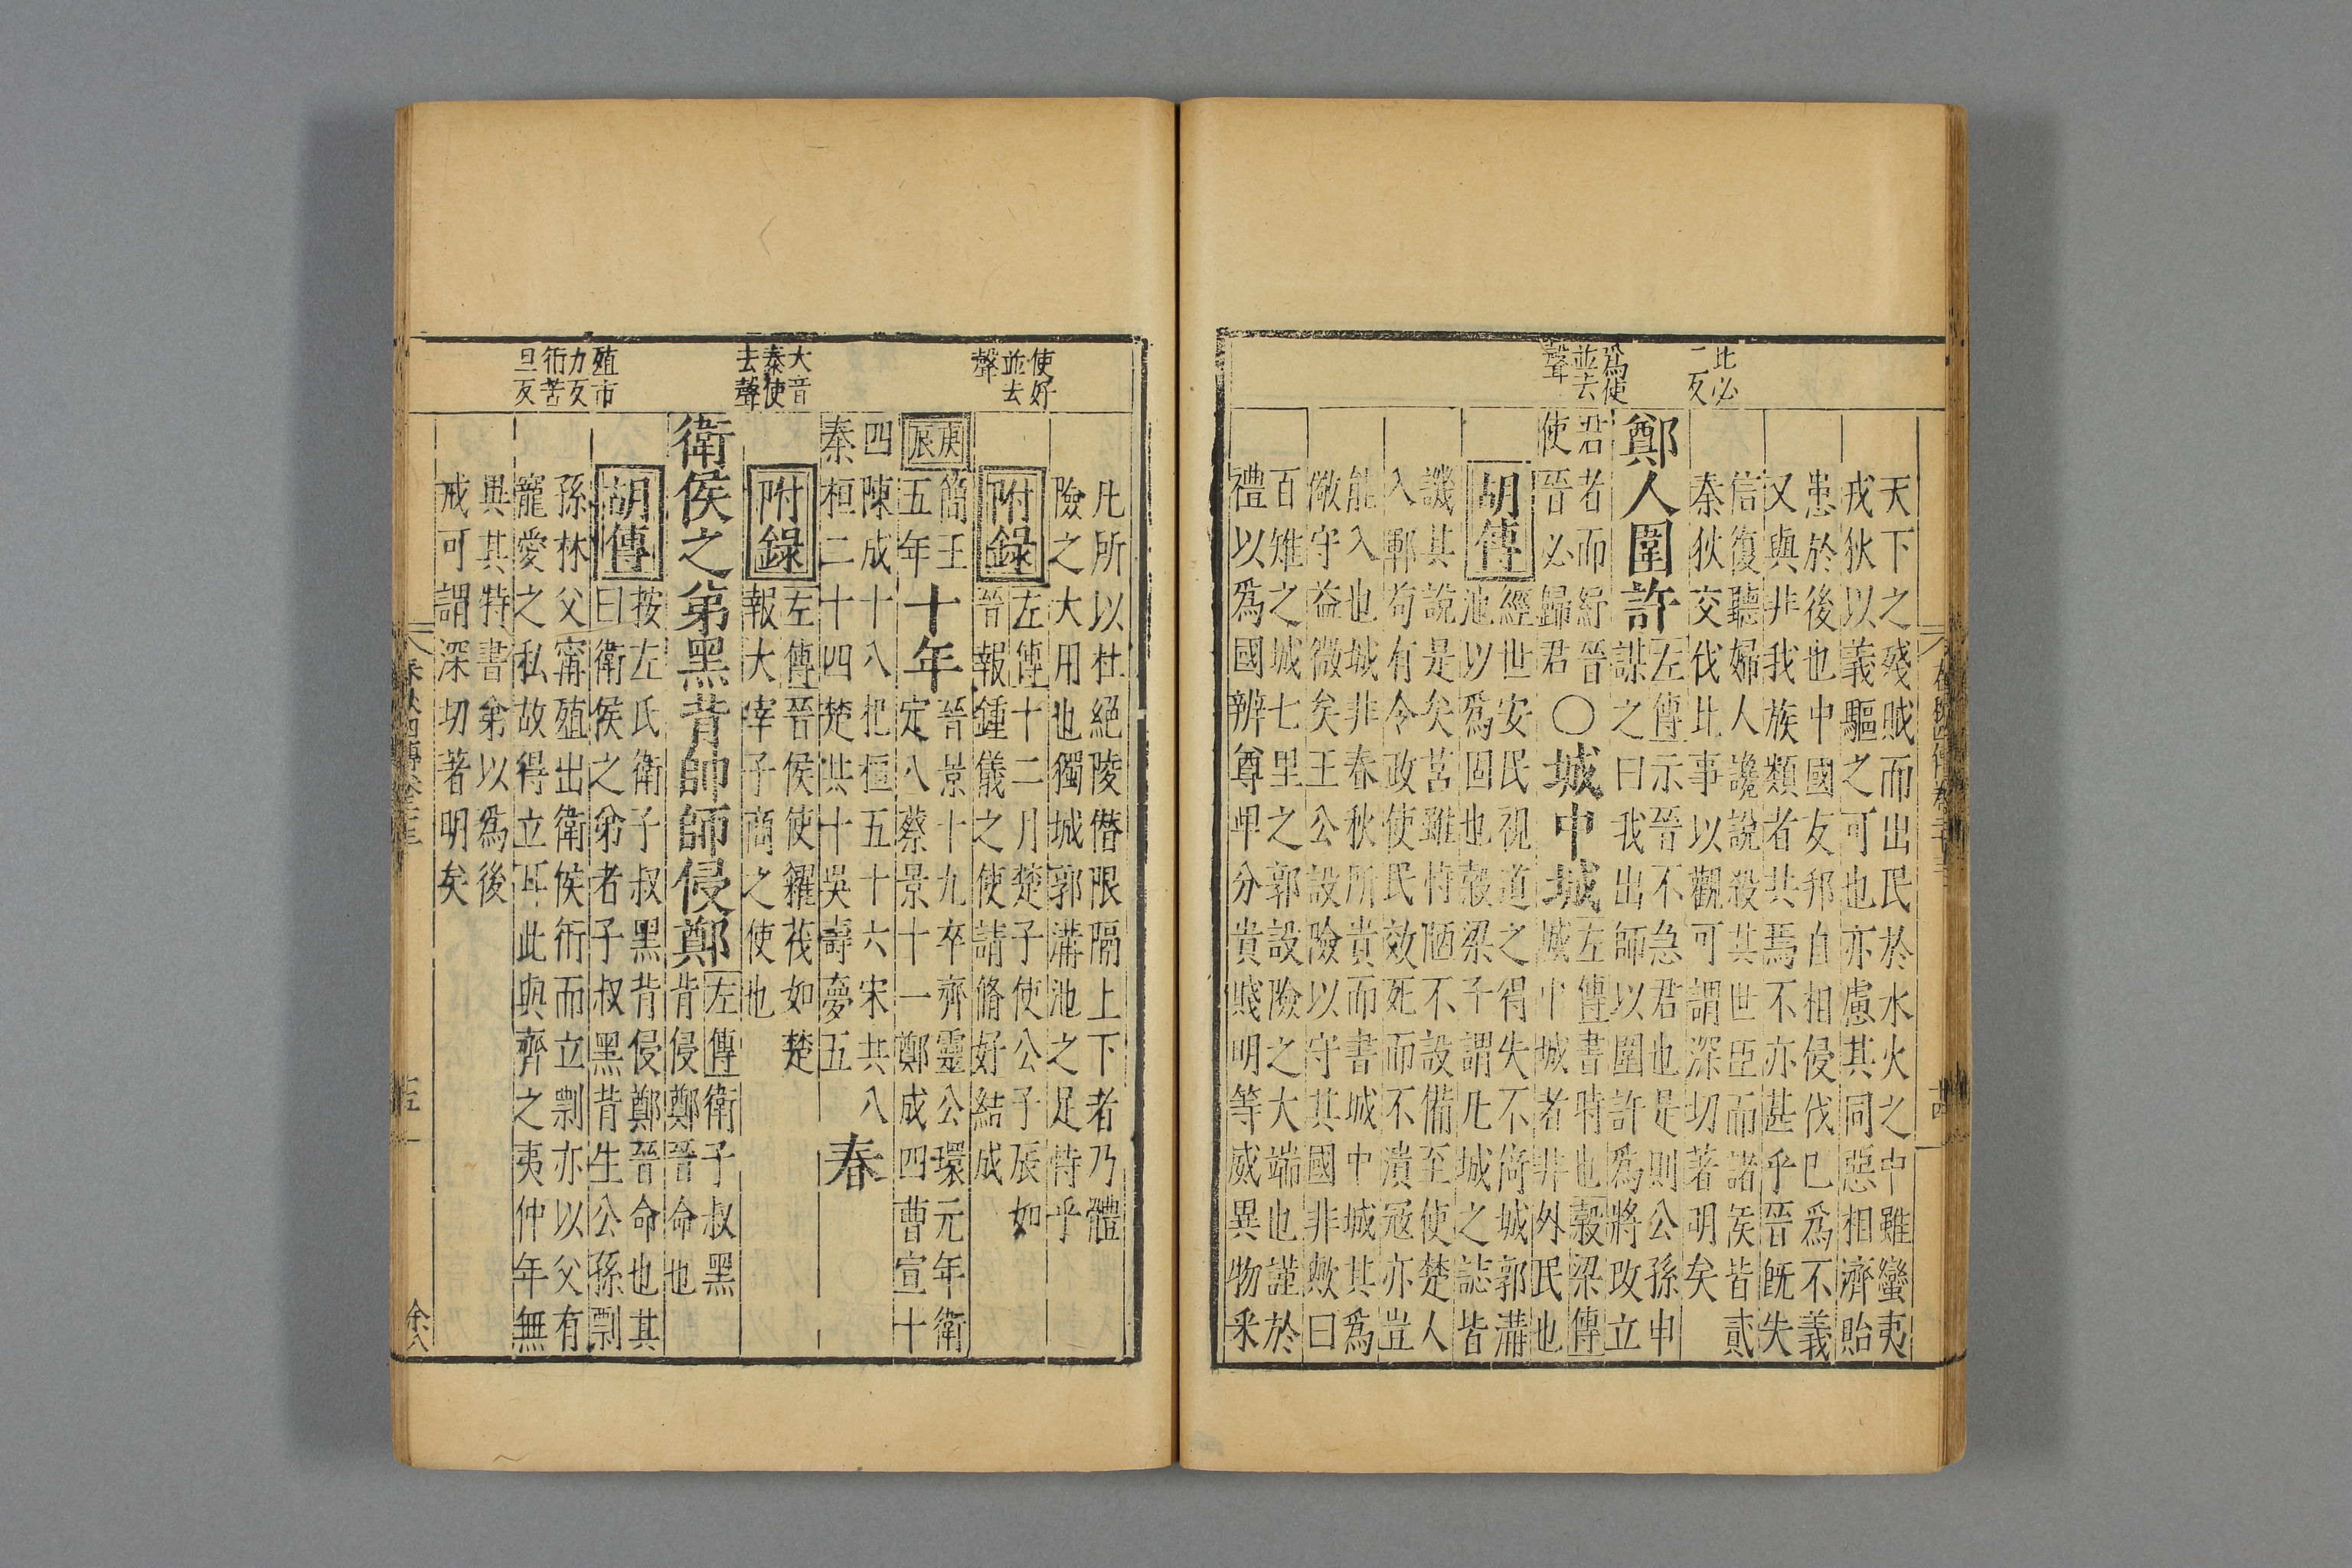 比必
二反
爲使
並去
聲
天下之殘賊而出民於水火之中雖蠻夷
戎狄以義驅之可也亦慮其同惡相濟貽
患於後也中國友邦自相侵伐已爲不義
又與非我族類者共焉不亦甚乎晉既失
信復聽婦人讒說殺其世臣而諸侯皆貳
秦狄交伐比事以觀可謂深切著明矣
鄭人圍許
左傳示晉不急君也是則公孫申
謀之曰我出師以圍許爲將改立
君者而紓晉
使晉必歸君
○城中城
左傳書時也穀梁傳
城中城者非外民也
胡傳
經世安民視道之得失不倚城郭溝
池以爲固也穀梁子謂凡城之誌皆
譏其說是矣莒雖恃陋不設備至使楚人
入鄆苟有令政使民效死而不潰寇亦豈
能入也城非春秋所貴而書城中城其爲
儆守益微矣王公設險以守其國非歟曰
百雉之城七里之郭設險之大端也謹於
禮以爲國辨尊卑分貴賤明等威異物采
使好
並去
聲
大音
泰使
去聲
殖市
力反
衎苦
旦反
凡所以杜絕陵僭限隔上下者乃體
險之大用也獨城郭溝池之足恃乎
附錄
左傳十二月楚子使公子辰如
晉報鍾儀之使請脩好結成
庚辰
簡王
五年
十年
晉景十九卒齊靈公環元年衛
定八蔡景十一鄭成四曹宣十
四陳成十八杞桓五十六宋共八
秦桓二十四楚共十吳壽夢五
春
附錄
左傳晉侯使糴茷如楚
報大宰子商之使也
衛侯之弟黑背帥師侵鄭
左傳衛子叔黑
背侵鄭晉命也
胡傳
按左氏衛子叔黑背侵鄭晉命也其
曰衛侯之弟者子叔黑背生公孫剽
孫林父甯殖出衛侯衎而立剽亦以父有
寵愛之私故得立耳此與齊之夷仲年無
異其特書弟以爲後
戒可謂深切著明矣